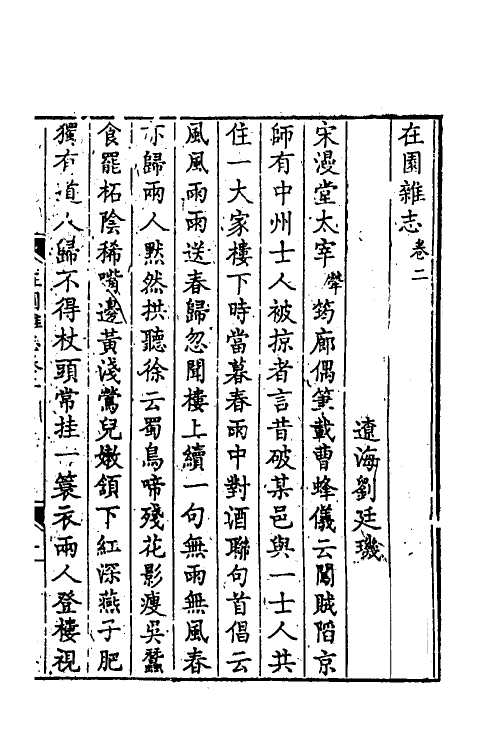 在園雜志卷二
遼海劉廷璣
宋漫堂太宰犖筠廊偶筆載曹蜂儀云闖賊陷京
師有中州士人被掠者言昔破某邑與一士人共
住一大家樓下時當暮春雨中對酒聯句首倡云
風風雨雨送春歸忽聞樓上續一句無雨無風春
亦歸兩人黙然拱聽徐云蜀鳥啼殘花影瘦吳蠶
食罷柘陰稀嘴邊黃淺鶯兒嫩頷下紅深燕子肥
獨有道人歸不得杖頭常挂一簑衣兩人登樓視